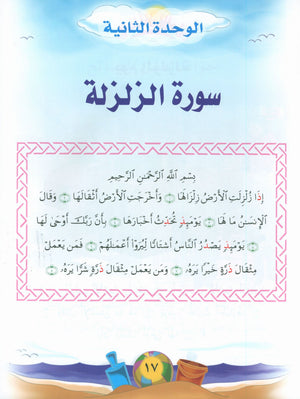 الوحدة الثانية
سورة الزلزلة
بِسْمِ اللَّهِ الرَّحْمَٰنِ الرَّحِيمِ
إِذَا زُلْزِلَتِ الْأَرْضُ زِلْزَالَهَا ۝١ وَأَخْرَجَتِ الْأَرْضُ أَثْقَالَهَا ۝٢ وَقَالَ
الْإِنسَٰنُ مَا لَهَا ۝٣ يَوْمَئِذٍ تُحَدِّثُ أَخْبَارَهَا ۝٤ بِأَنَّ رَبَّكَ أَوْحَىٰ لَهَا
۝٥ يَوْمَئِذٍ يَصْدُرُ النَّاسُ أَشْتَاتًا لِّيُرَوْا أَعْمَٰلَهُمْ ۝٦ فَمَن يَعْمَلْ
مِثْقَالَ ذَرَّةٍ خَيْرًا يَرَهُ ۝٧ وَمَن يَعْمَلْ مِثْقَالَ ذَرَّةٍ شَرًّا يَرَهُ ۝٨
١٧